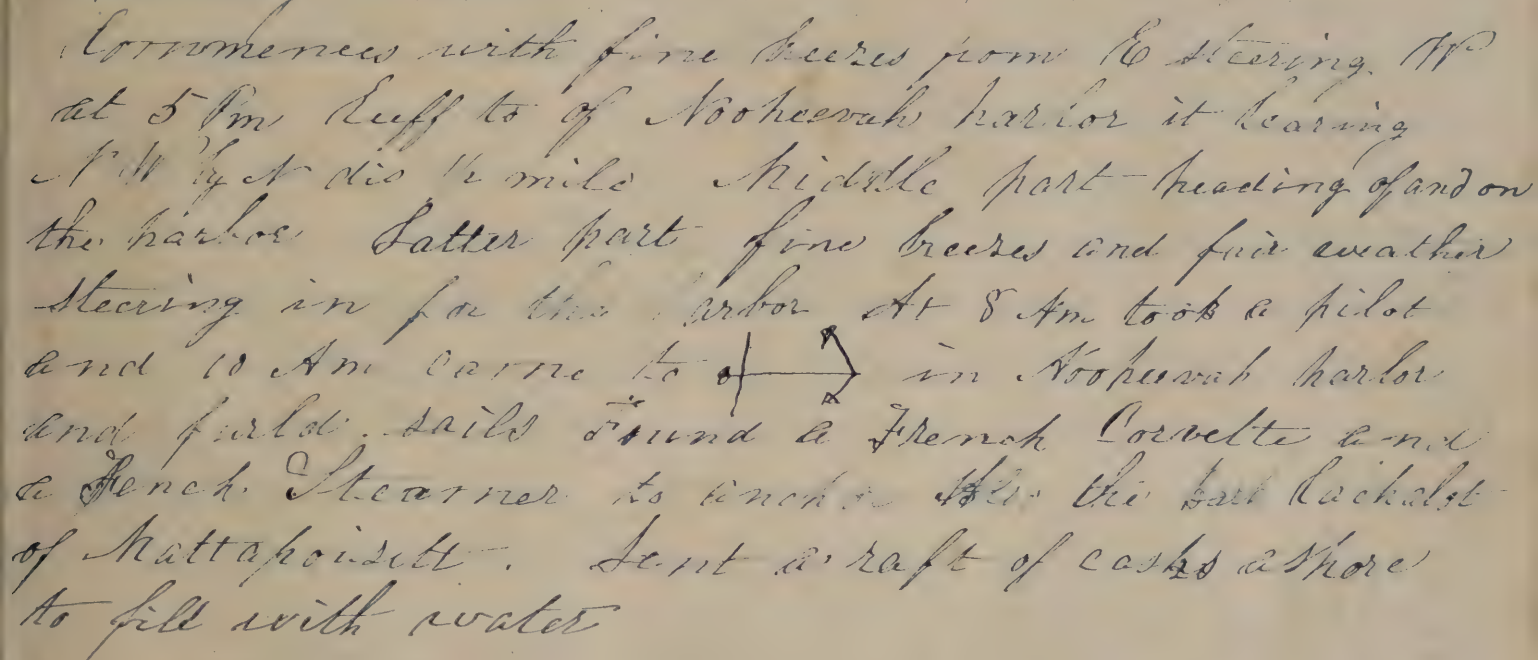 Commences with fine breezes from E steering W
at 5 Pm luff to of Nooheevah harbor it bearing
N W by N dis 1/2 mile Middle part heading of and on
the harbor Latter part fine breezes and fair weather
steering in for the harbor At 8 Am took a pilot
and 10 Am came to in Nooheevah harbor
and furld sails Found a French Corvette and
a French Steamer to anchor Also the bark Cachalot
of Mattapoisett. Sent a raft of casks ashore
to fill with water